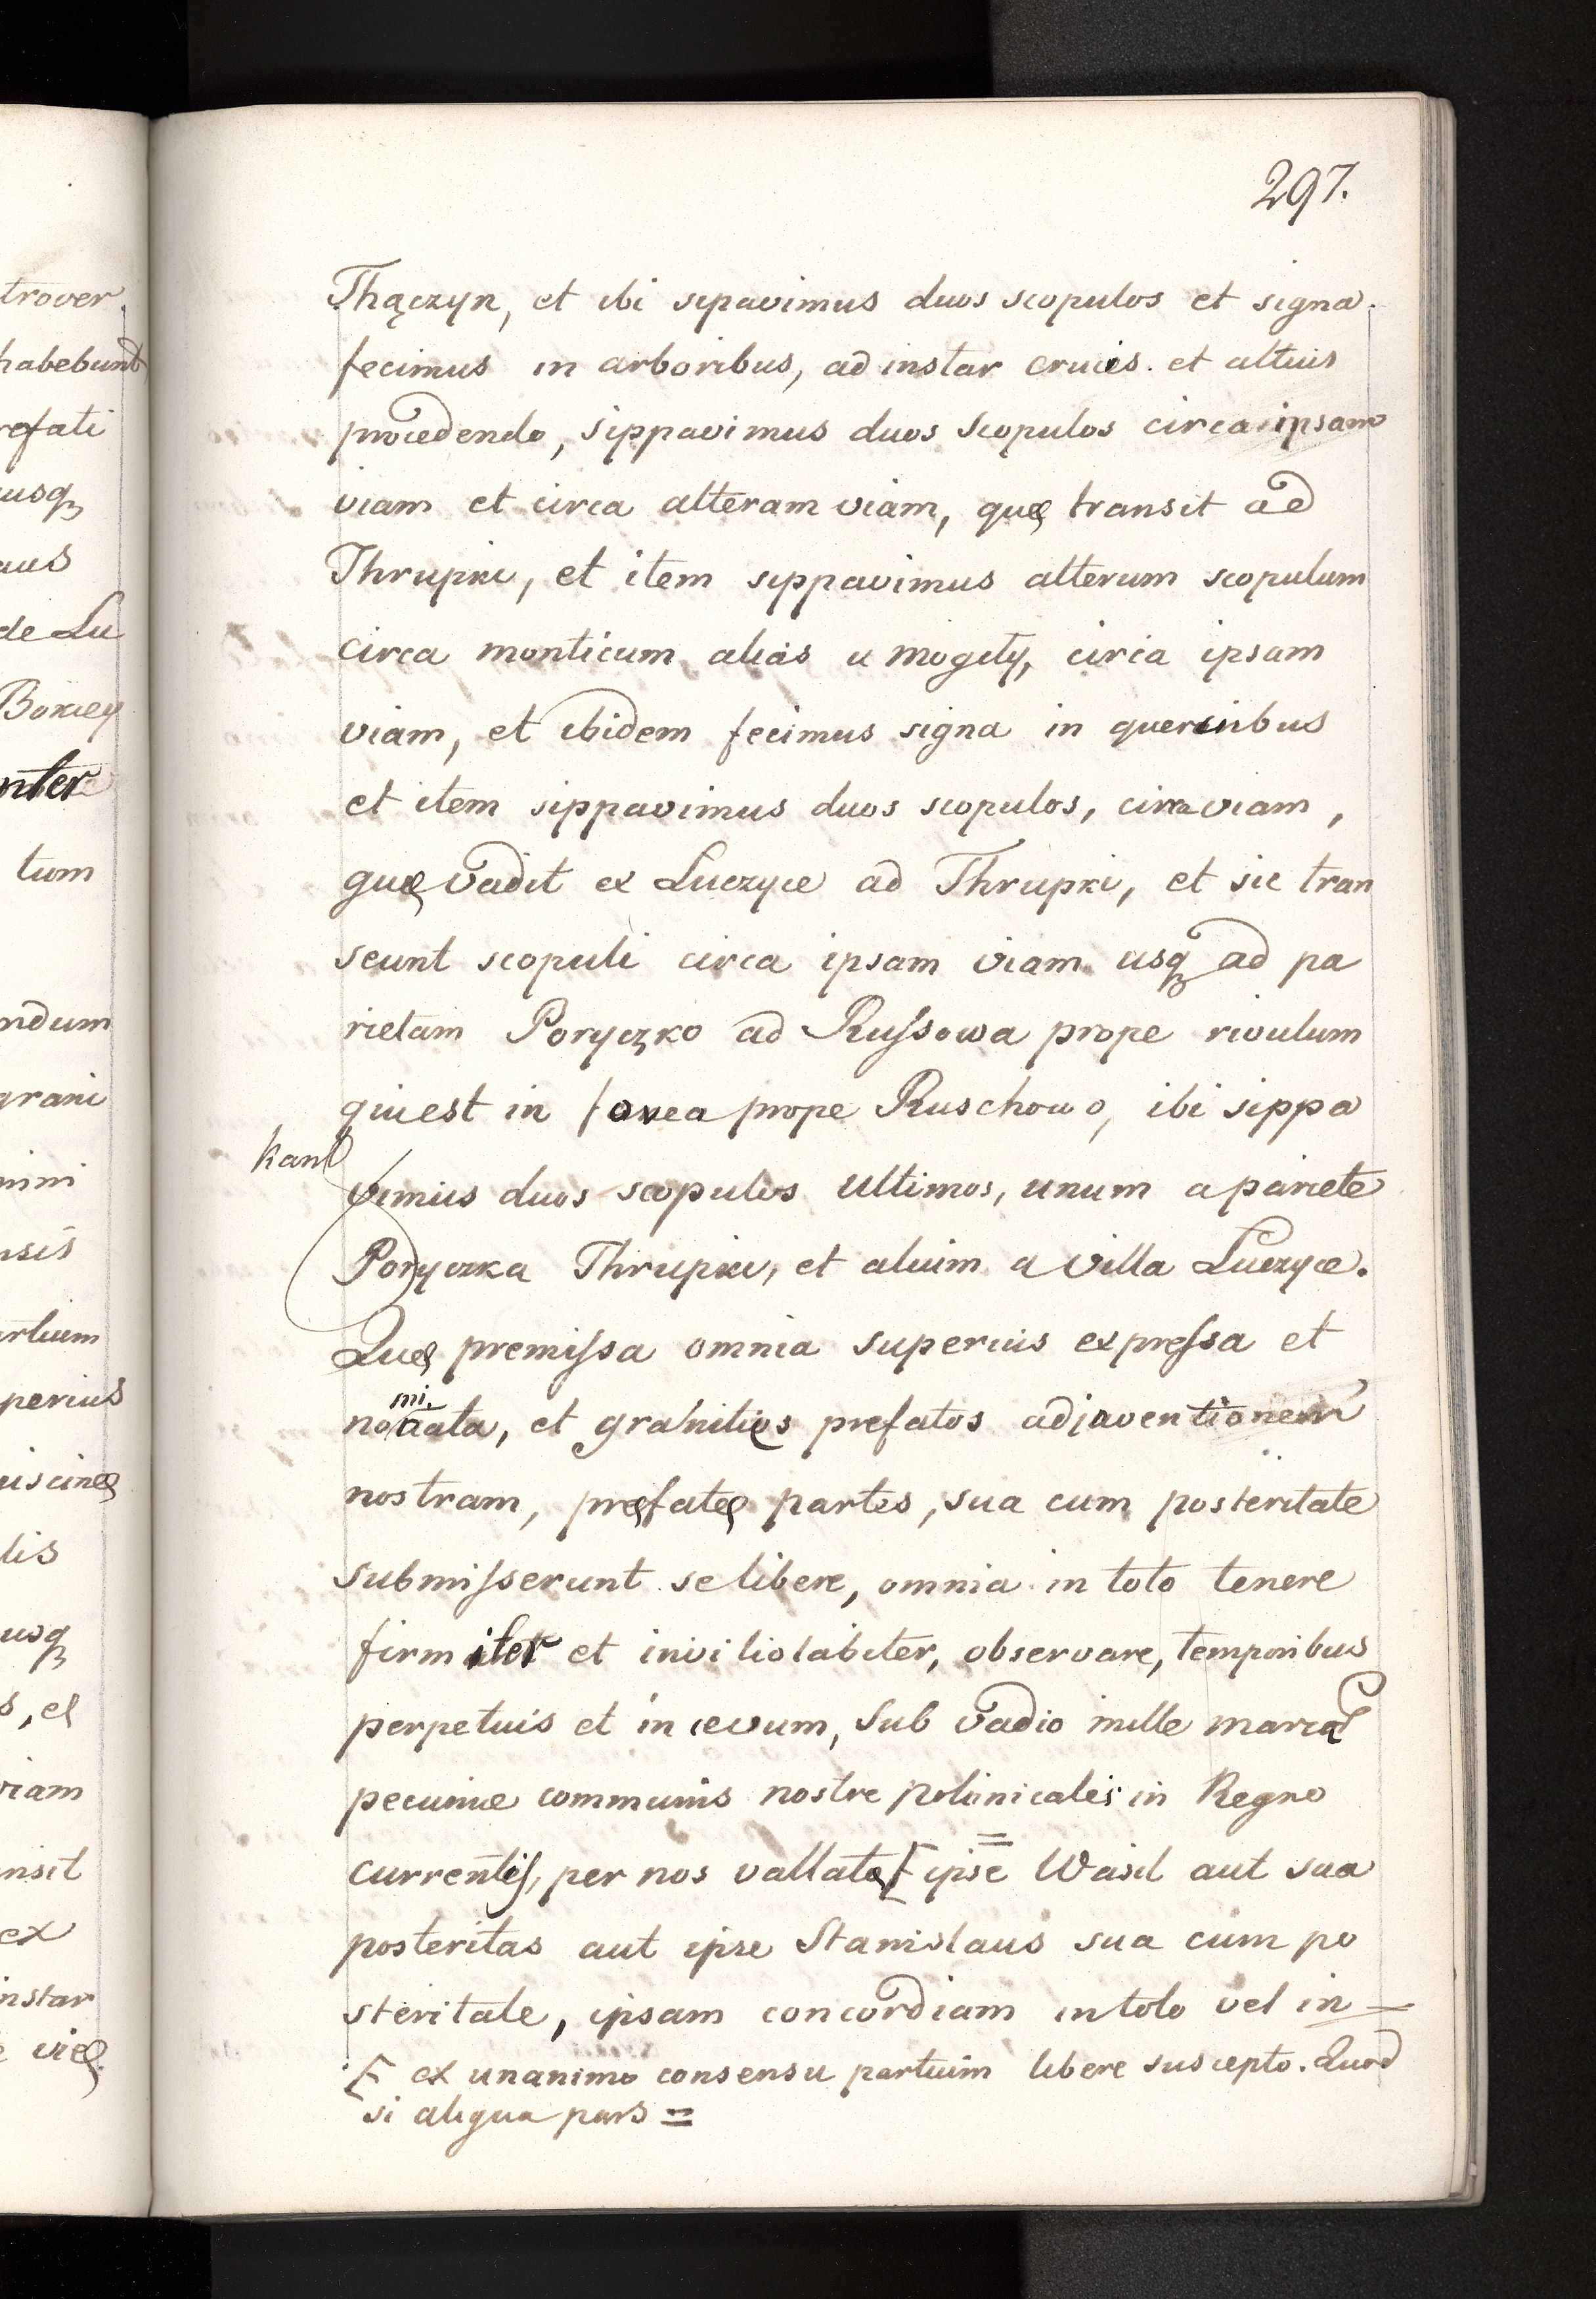 297.
Thączyn, et ibi sipavimus duos scopulos et signa
fecimus in arboribus, ad instar crucis. et altius
procedendo, sippavimus duos scopulos circa ipsam
viam et circa alteram viam, quę transit ad
Thrupki, et item sippavimus alterum scopulum
circa monticum alias u mogiły, circa ipsam
viam, et ibidem fecimus signa in quercubus
et item sippavimus duos scopulos, circa viam,
quę vadit ex Luczyce ad Thrupki, et sic tran
seunt scopuli circa ipsam viam usq ad pa
rietam Poryczko ad Russowa prope rivulum
qui est in fovea prope Ruschowo, ibi sippa
vimus duos scopulos ultimos, unum a pariete
kam
Poryczka Thrupki, et alium a villa Luczyce.
Quę premissa omnia superius expressa et
nominata, et granities prefatos adjaventionem
nostram, pręfatę partes, sua cum posteritate
submisserunt se libere, omnia in toto tenere
firmiter et inviliolabiter, observare, temporibus
perpetuis et in ęvum, sub vadio mille marcar
pecuniæ communis nostre polonicales in Regno
currentis, per nos vallato [ ipse Wasil aut sua
posteritas aut ipse Stanislaus sua cum po
steritate, ipsam concordiam in toto vel in =
[ ex unanimo consensu partium libere suscepto. Quod
si aliqua pars =
trover.
habebunt
refati
usq
aus
de Lu
Bokiey
nter
tum
ndum
grani
nini
nsis
rtium
perius
iscinę
lis
usq
s, et
viam
nsit
ex
nstar
e vię.